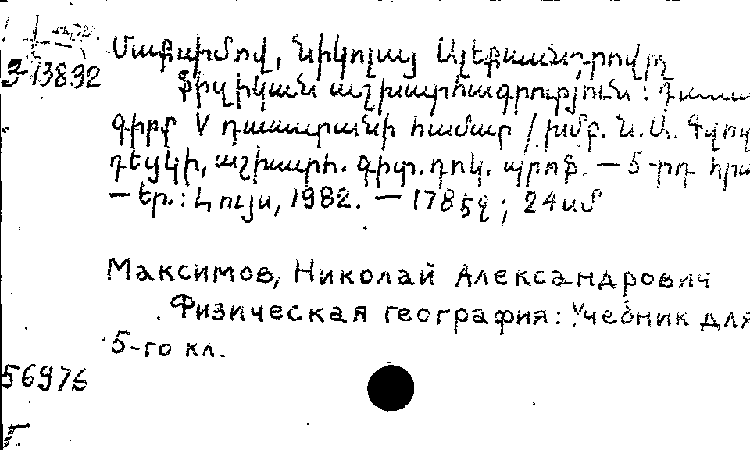 3-13892
Մաքսիմով, Նիկոլայ Ալեքսանդրովիչ
Ֆիզիկական աշխարհագրություն: Դասա
գիրք V դասարանի համար / խմբ. Ն. Ա. Գվոզ
դեցկի, աշխարհ. գիտ. դոկ. պրոֆ. — 5-րդ հրա
— Եր.: Լույս, 1982. — 178 էջ; 24 սմ
Максимов, Николай Александрович
Физическая география: Учебник для
5-го кл.
56976
Г.